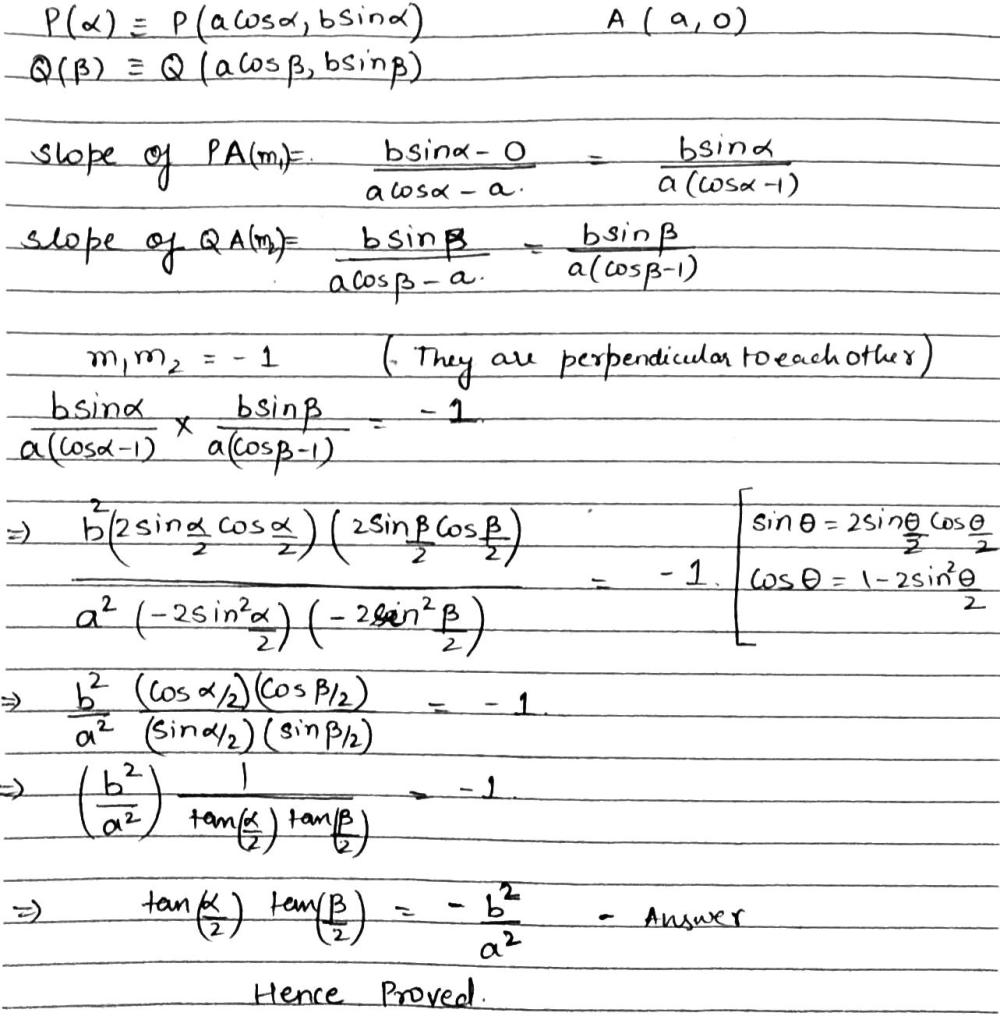 P(α) ≡ P(a cosα, b sinα) A (a, 0)
Q(β) ≡ Q (a cos β, b sin β)
slope of PA(m₁)= (b sinα - 0)/(a cosα - a.) = (b sinα)/(a (cosα -1))
slope of QA(m₂)= (b sin β)/(a cos β - a.) = (b sin β)/(a(cosβ-1))
m₁m₂ = - 1 (. They are perpendicular to each other)
(b sinα)/(a(cosα-1)) × (b sin β)/(a(cosβ-1)) = - 1
⇒ b²(2 sin α/2 cos α/2) (2 sin β/2 cos β/2) / a² (-2 sin² α/2) (-2 sin² β/2) = - 1. [sin θ = 2 sin θ/2 cos θ/2
cos θ = 1 - 2 sin² θ/2
⇒ b²/a² (cos α/2)(cos β/2)/(sin α/2)(sin β/2) = - 1.
⇒ (b²/a²) 1/(tan(α/2) tan(β/2)) = -1.
⇒ tan(α/2) tan(β/2) = - b²/a² - Answer
Hence Proved.